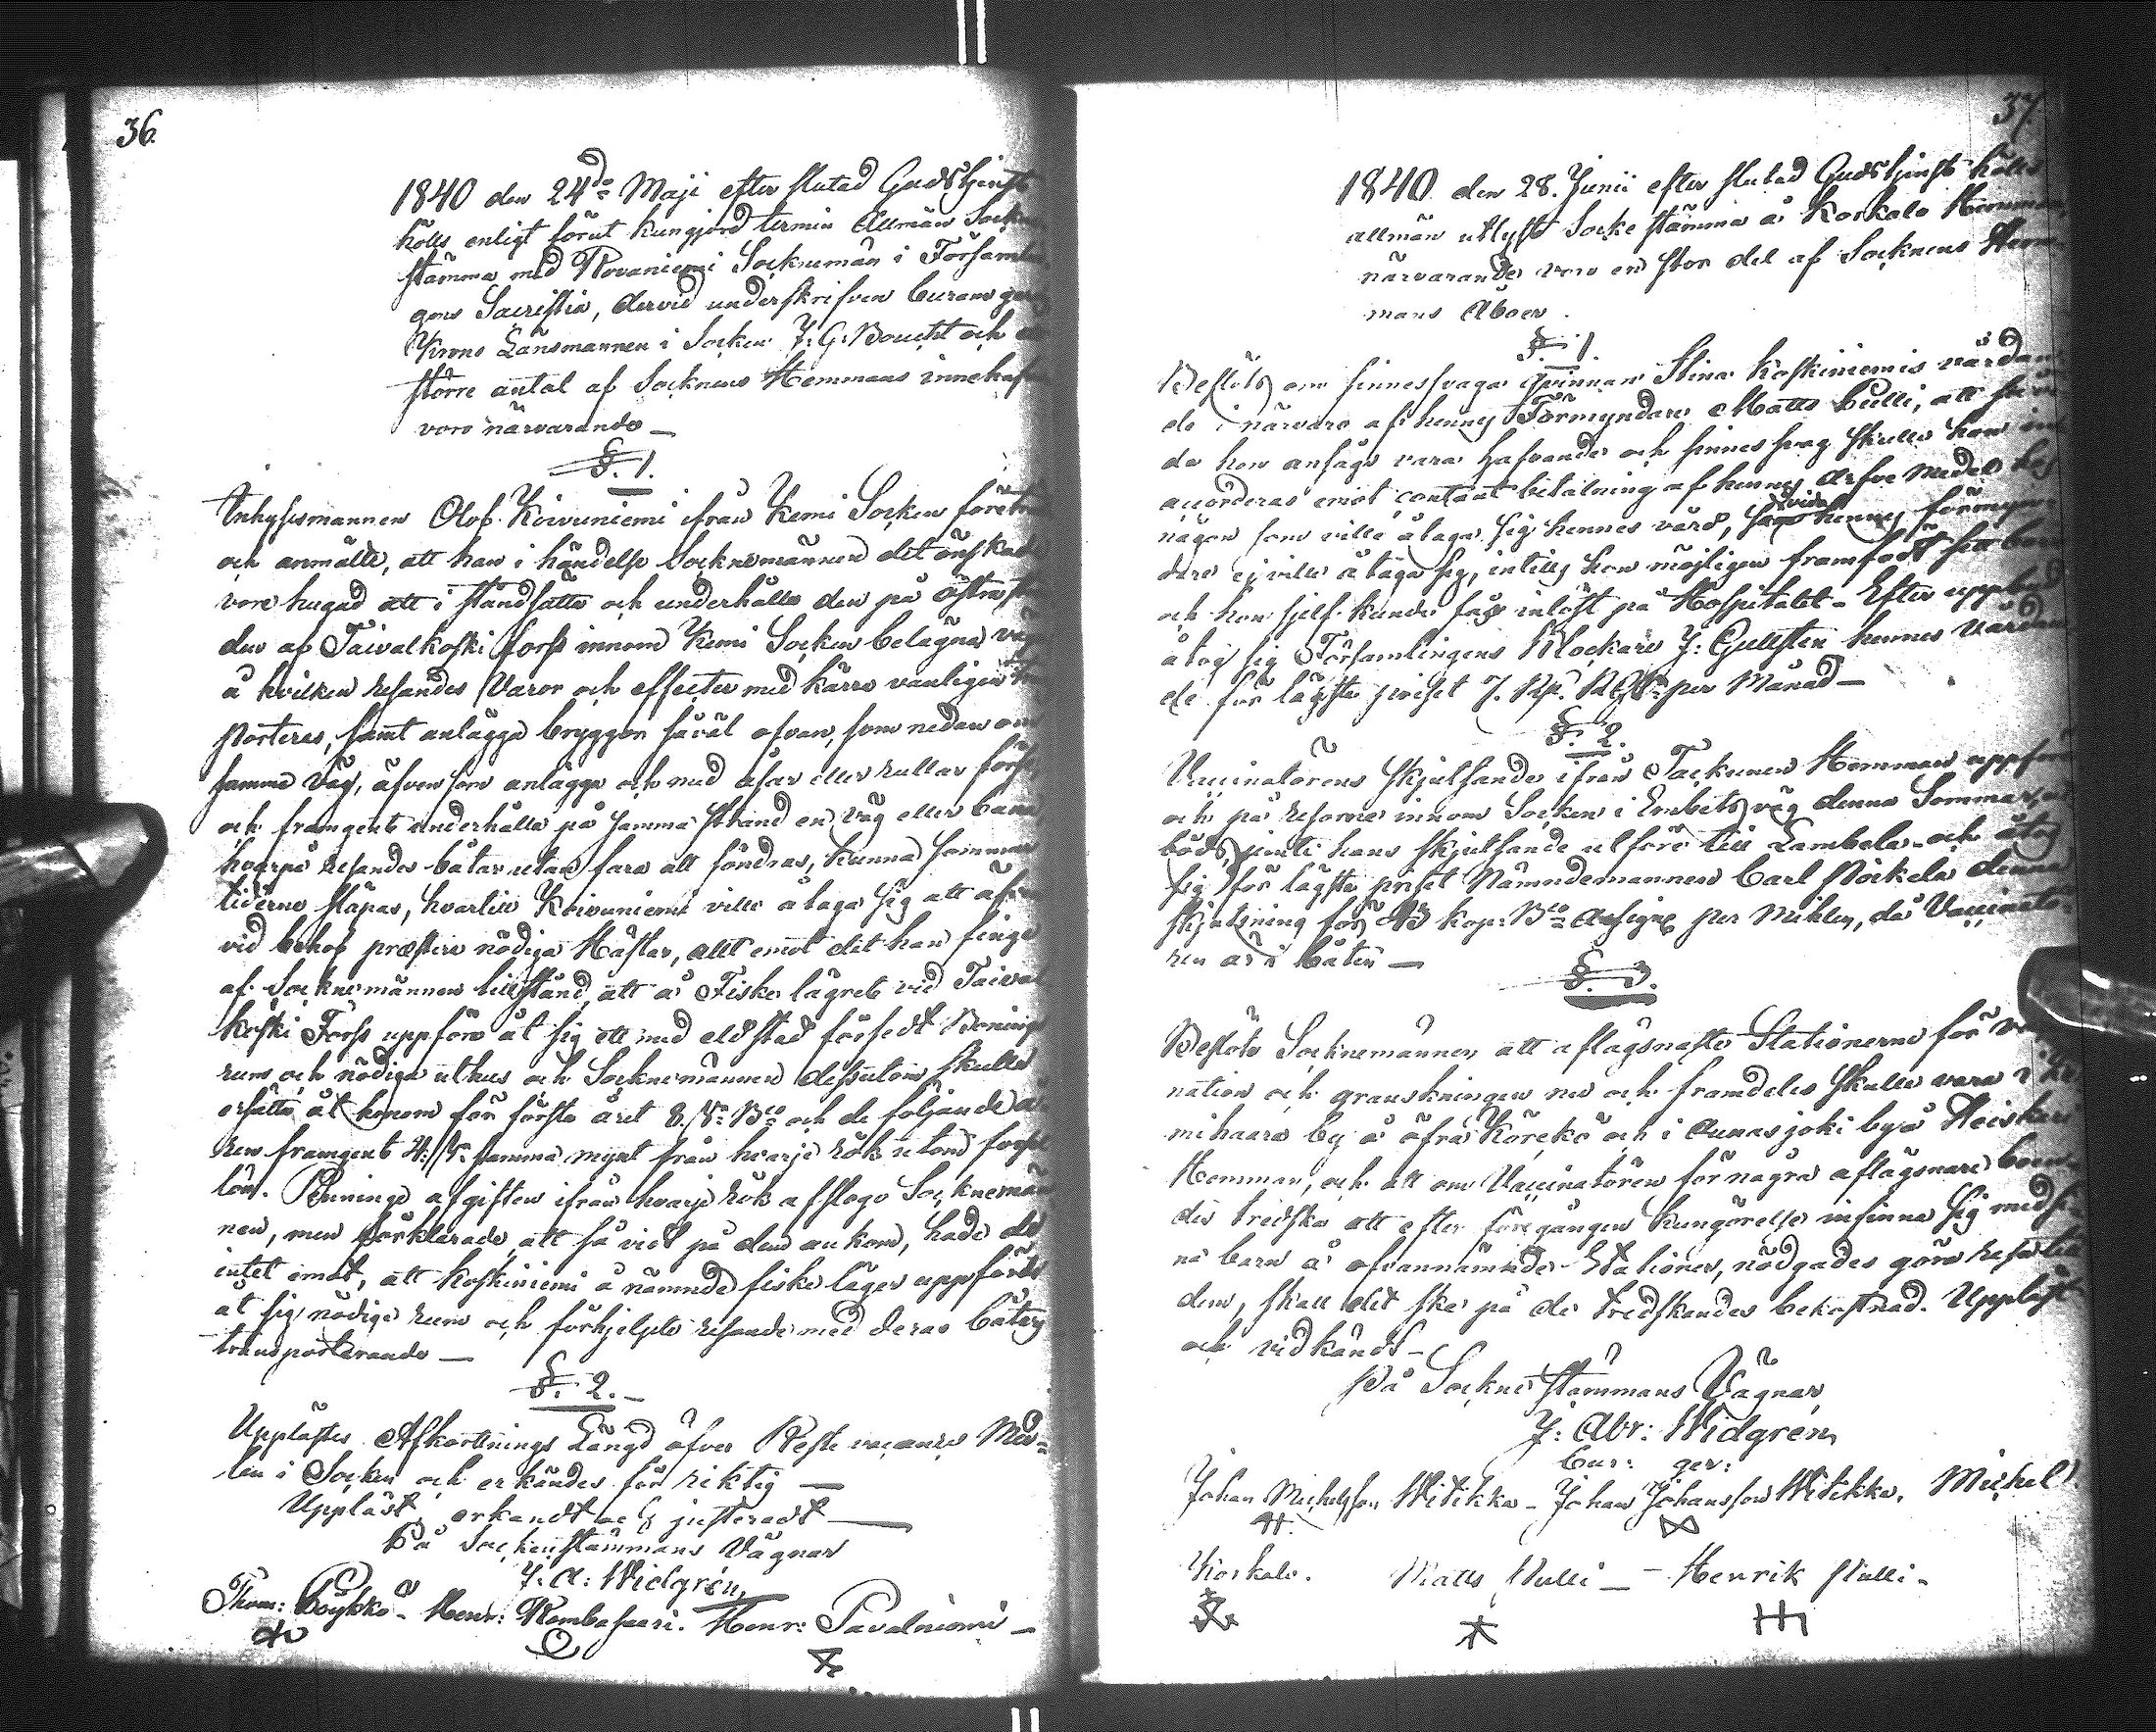 36.
1840 den 24de Maji efter slutad Gudstjenst
hölls enligt förut kungjord termin Allmän Sockne
stämma med Rovaniemi Socknemän i Församlin
gens Sacristia, dervid underskrifven curam gerens
Krono Länsmannen i Socken J: G: Boucht och
större antal af Socknens Hemmans innehafvare
voro närvarande —
§. 1.
Inhysesmannen Olof Koivuniemi ifrån Kemi Socken
och anmälte, att han i händelse Socknemännen det önskade
vore hugad att i ståndsätta och underhålla den på östra
den af Taivalkoski fors innom Kemi Socken belägna
å hvilken resandes Varor och effecter med kärra vanligen
porteras, samt anlägga bryggor såväl ofvan, som nedan om
samma väg, äfven som anlägga och med åsar eller rullar
och framgent underhålla på samma strand en väg eller bana
hvarpå resandes båtar utan fara att söndras, kunna sommar
tiderne släpas, hvartill Koivuniemi ville åtaga sig att
vid behof præstera nödiga Hästar, allt emot det han finge
af Socknemännen tillstånd, att å Fiske lägret vid Taival
koski Fors uppföra åt sig ett med eldstad försedt Bonings
rum och nödiga uthus och Socknemännen dessutom skulle
ersätta åt honom för första året 8. Bco och de följande
ren framgent 4. samma mynt från hvarje rök utom
lön. Pennings afgiften ifrån hvarje rök afslogo Socknemän
nen, men förklarade, att så vidt på dem ankom, hade de
intet emot, att Koskiniemi å nämnde fiske läger uppförde
åt sig nödiga rum och förhjelpte resande med deras båtars
transporterande —
§. 2.
Upplästes Afkortnings Längd öfver Reste
len i Socken och erkändes för riktig —
Uppläst, erkändt och justeradt —
På Sockenstämmans Vägnar
J: A: Widgrén
Thom: Böykkö – Henr: Rombasaari. Henr: Pavalniemi —
37.
1840. den 28. Junii efter slutad Gudstjenst hölls
allmän utlyst Socke stämma å Korkalo Hemman,
närvarande voro en stor del af Socknens Hem
mans Åboer.
§. 1.
Beslöts om sinnessvaga qvinnan Stina Koskiniemis vårdan
de i närvaro af hennes Förmyndare Matts Pulli, att
da hon ansågs vara hafvande och sinnes svag skulle hon
accorderas emot contant betalning af hennes medel
någon som ville åtaga sig hennes vård, vida hennes förmyn
dare ej ville åtaga sig, intills hon möjligen framfödt sitt barn
och hon sjelf kunde få inlöst på Hospitalet – Efter uppbud
åtog sig Församlingens Klockare J: Gullsten hennes vårdan
de för lägsta priset 7. Rub. per Månad —
§. 2.
Vaccinatörens skjutsande ifrån Tackunen Hemman
och på resorne innom Socken i Embets väg denna Sommar,
böds, jemte hans skjutsande utföre till Lambela – och åtog
sig för lägsta priset Nämndemannen Carl denna
skjutsning för kop: Bco per Mihlen, då Vaccinatö
ren är i båten —
§. 3.
Beslöto Socknemännen att aflägsnaste Stationerne för
nation och granskningen nu och framdeles skulle vara
mihaara by å öfra Körckö och i Aunasjoki by å
Hemman, och att om Vaccinatören för några aflägsnare boen
des tredska att efter föregången kungörelse infinna sig med si
na barn å ofvannämnde Stationer, nödgades göra resa till
dem, skall det ske på de tredskandes bekostnad. Uppläst
och vidkändt –
På Sockne stämmans Vägnar,
J: Abr: Widgrén
Cur: ger:
Johan Michelsson Witikka – Johan Johansson Witikka. Michel
Korkalo. Matts Pulli — Henrik Pulli –